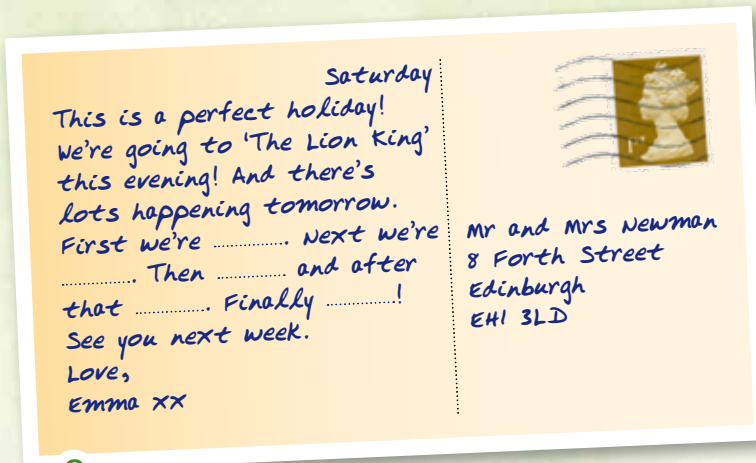 Saturday
This is a perfect holiday!
We're going to 'The Lion King'
this evening! And there's
lots happening tomorrow.
First we're ............. Next we're
............. Then ............ and after
that ............. Finally ............!
See you next week.
Love,
Emma xx
Mr and Mrs Newman
8 Forth Street
Edinburgh
EH1 3LD
1st